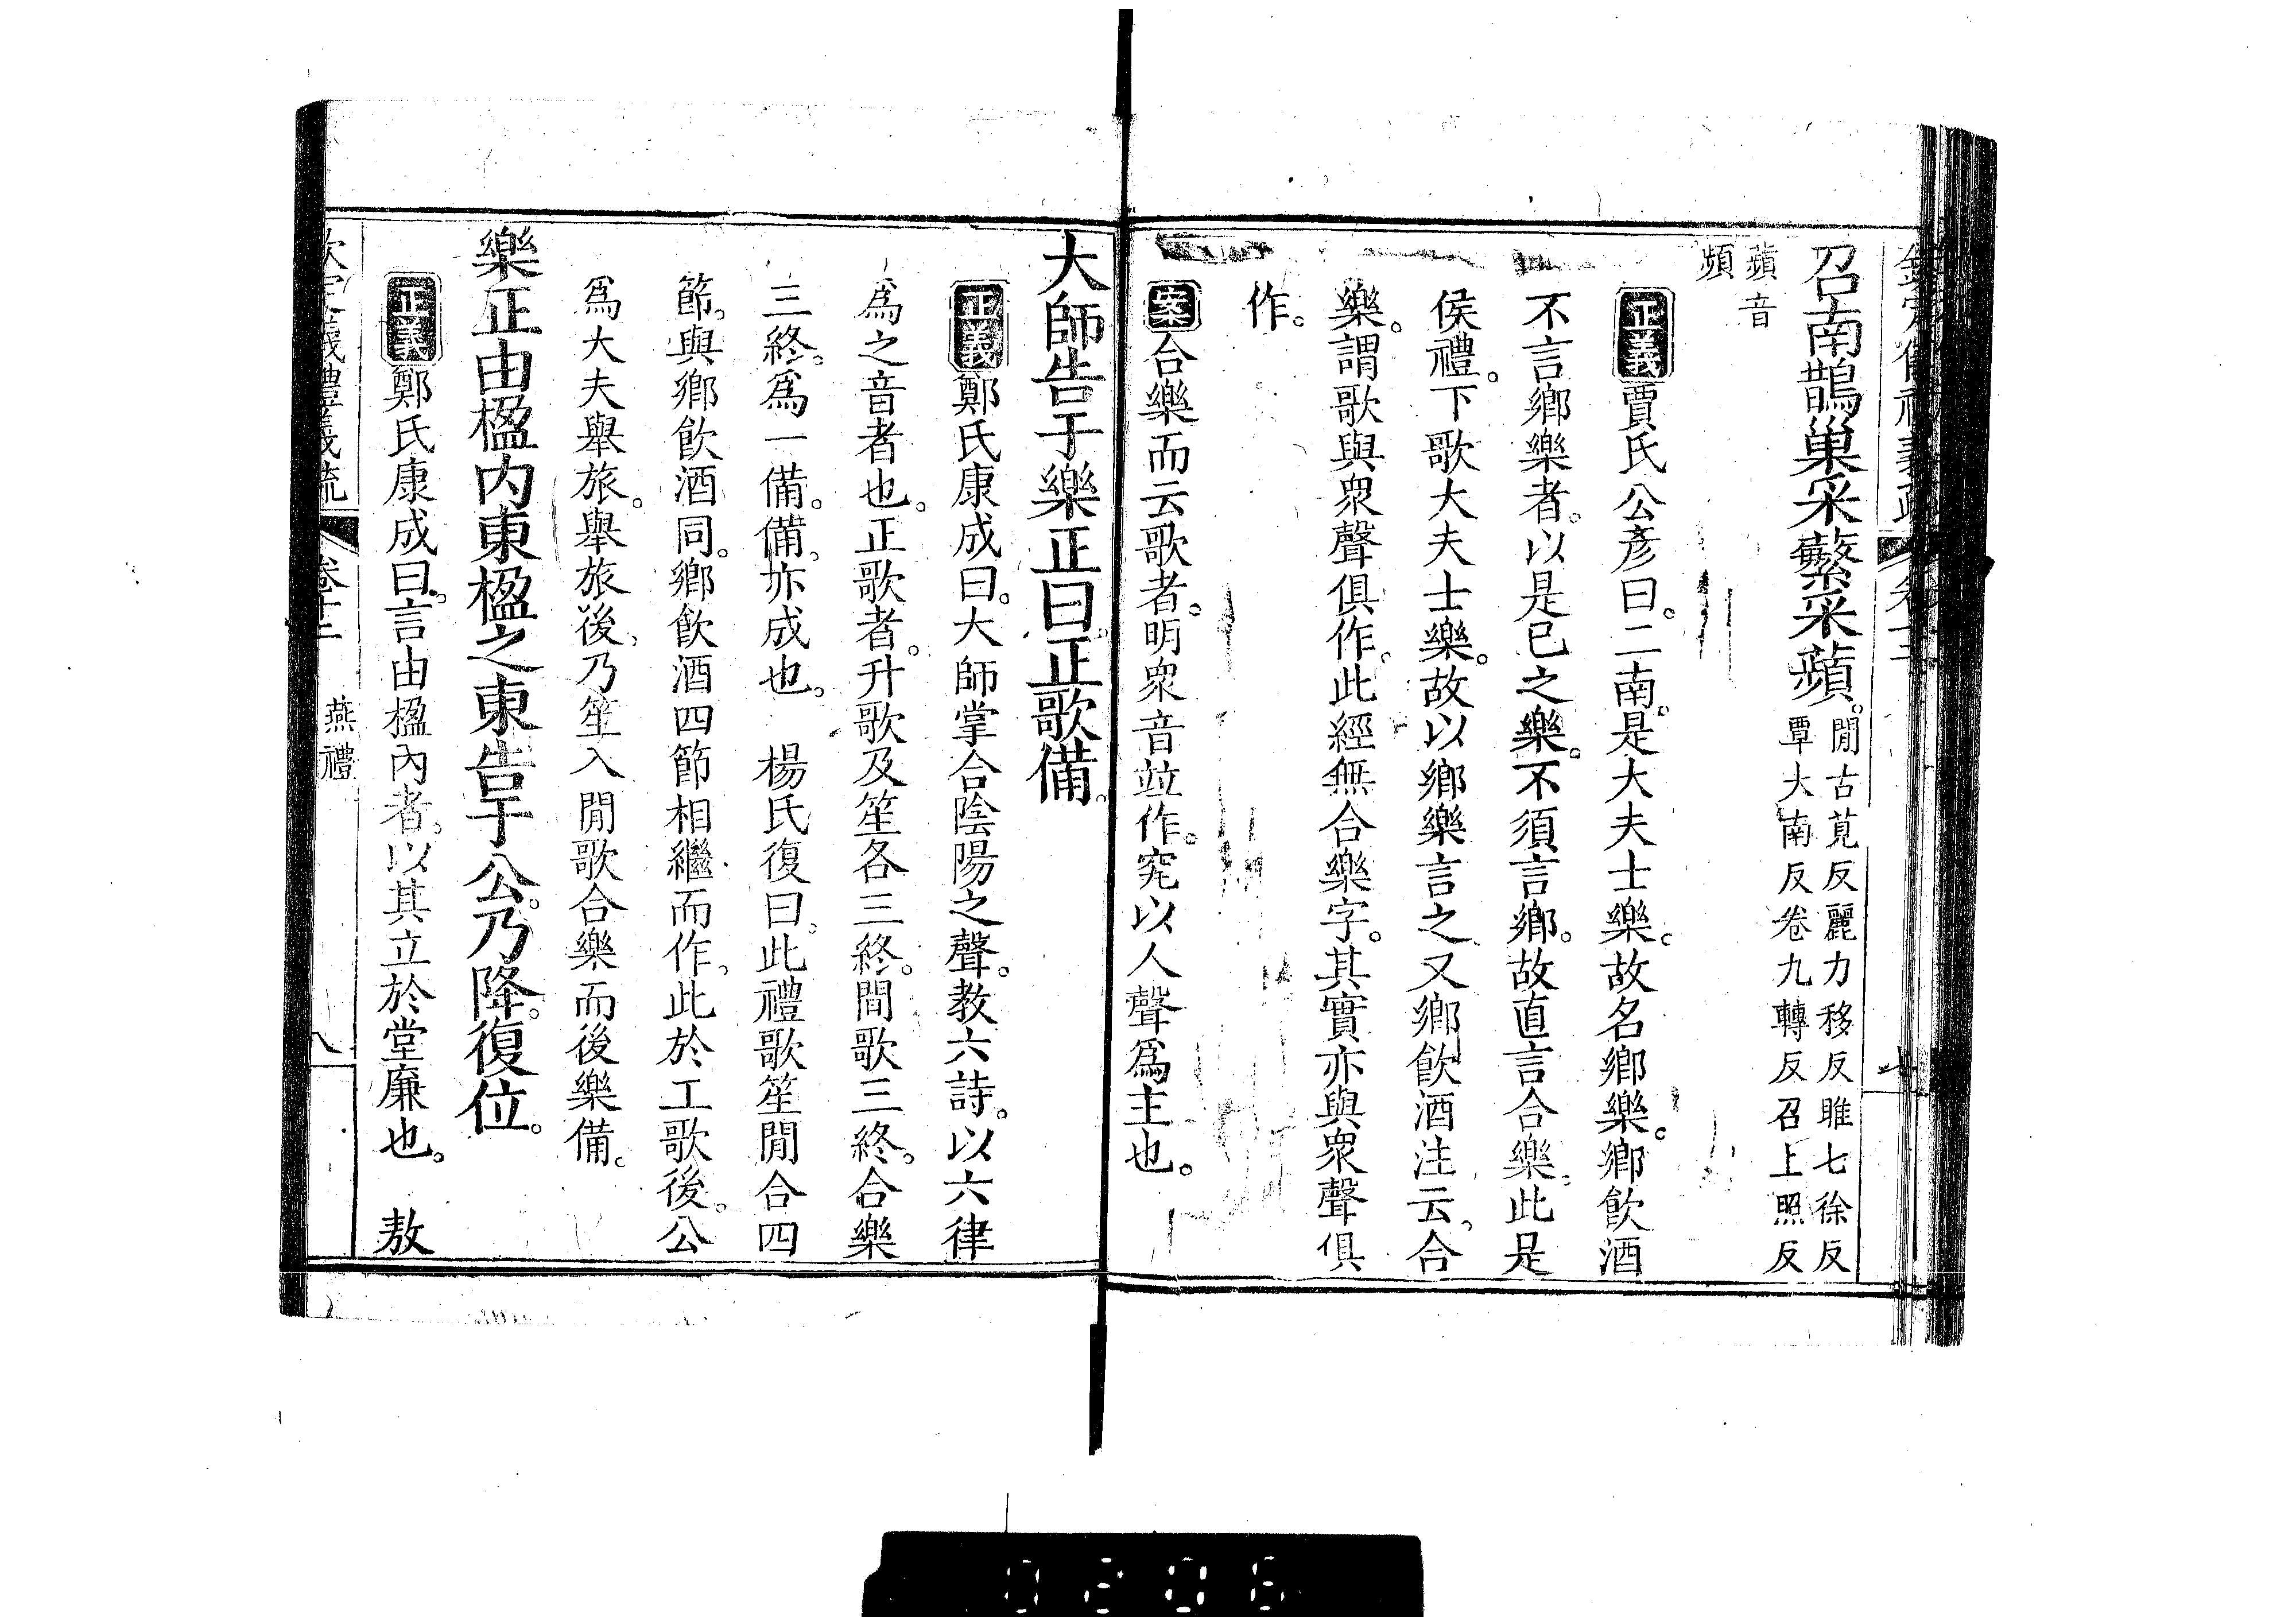 召南鵲巢采蘩采蘋。閒古莧反麗力移反雎七徐反
覃大南反卷九轉反召上照反
蘋音
頻
正義賈氏公彥曰。二南。是大夫士樂。故名鄉樂。鄉飲酒
不言鄉樂者。以是已之樂。不須言鄉。故直言合樂。此是
侯禮。下歌大夫士樂。故以鄉樂言之。又鄉飲酒注云。合
樂。謂歌與衆聲俱作。此經無合樂字。其實亦與衆聲俱
作。
案合樂而云歌者。明衆音竝作。究以人聲爲主也。
大師告于樂正曰正歌備。
正義鄭氏康成曰。大師掌合陰陽之聲。教六詩。以六律
爲之音者也。正歌者。升歌及笙各三終。間歌三終。合樂
三終。爲一備。備。亦成也。 楊氏復曰。此禮歌笙閒合四
節。與鄉飲酒同。鄉飲酒四節相繼而作。此於工歌後。公
爲大夫舉旅。舉旅後。乃笙入閒歌合樂而後樂備。
樂正由楹內東楹之東告于公。乃降。復位。
正義鄭氏康成曰。言由楹內者。以其立於堂廉也。 敖
欽定儀禮義疏 卷十二 燕禮 八